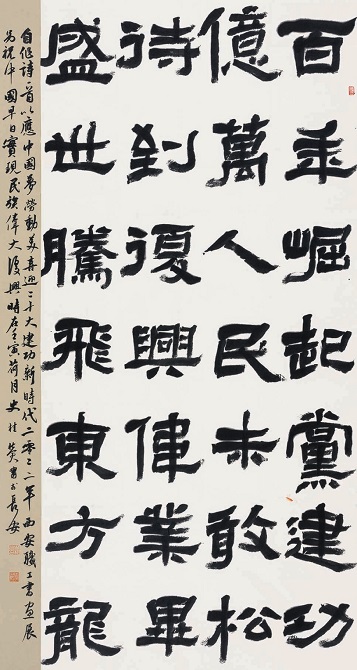 百年崛起黨建功
億萬人民未敢松
待到復興偉業畢
盛世騰飛東方龍
自作詩一首以應中國夢勞動美喜迎二十大建功新時代二零二二年西安職工書畫展
為祝中國早日實現民族偉大復興時在壬寅荷月史桂
書於長安